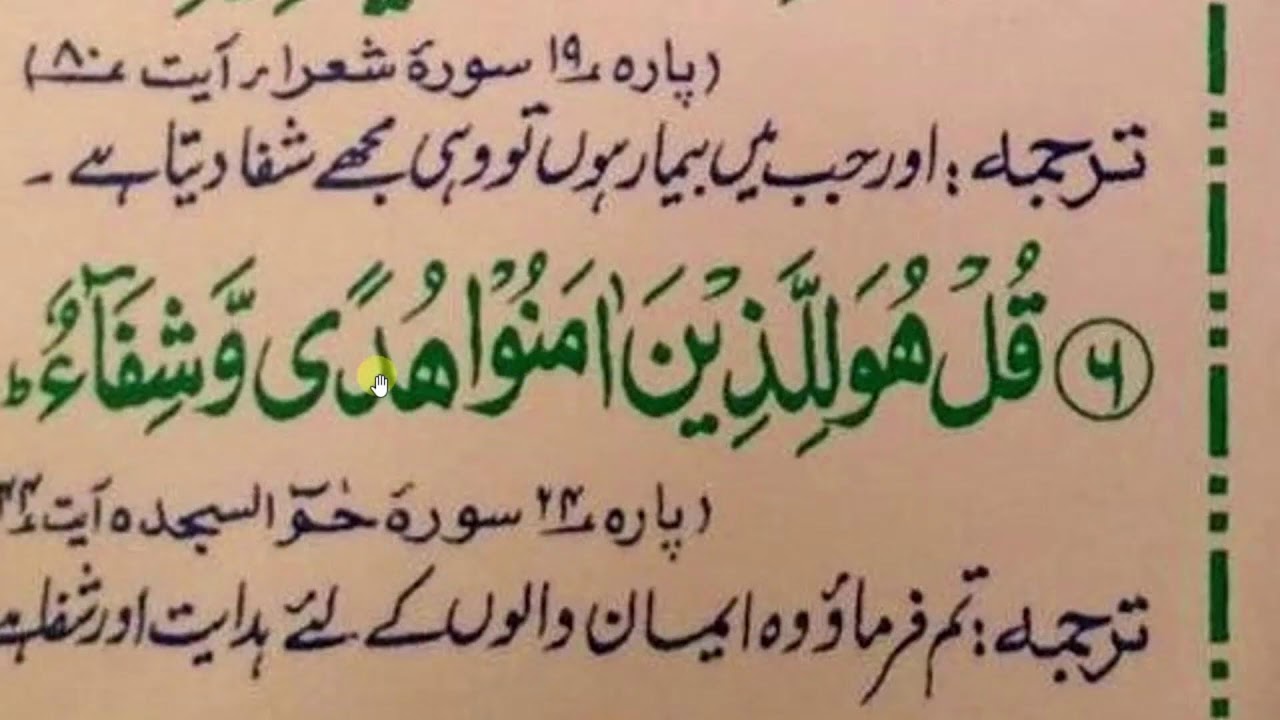 (پارہ ۱۹ سورۃ شعرا، آیت ۸۰)
ترجمہ: اور جب میں بیمار ہوں تو وہی مجھے شفا دیتا ہے۔
۶ قُلْ هُوَ لِلَّذِيْنَ اٰمَنُوْا هُدًى وَّشِفَآءٌ ؕ
(پارہ ۲۴ سورۃ حٰمٓ السجدہ آیت ۴۴
ترجمہ: تم فرماؤ وہ ایمان والوں کے لئے ہدایت اور شفا ہے